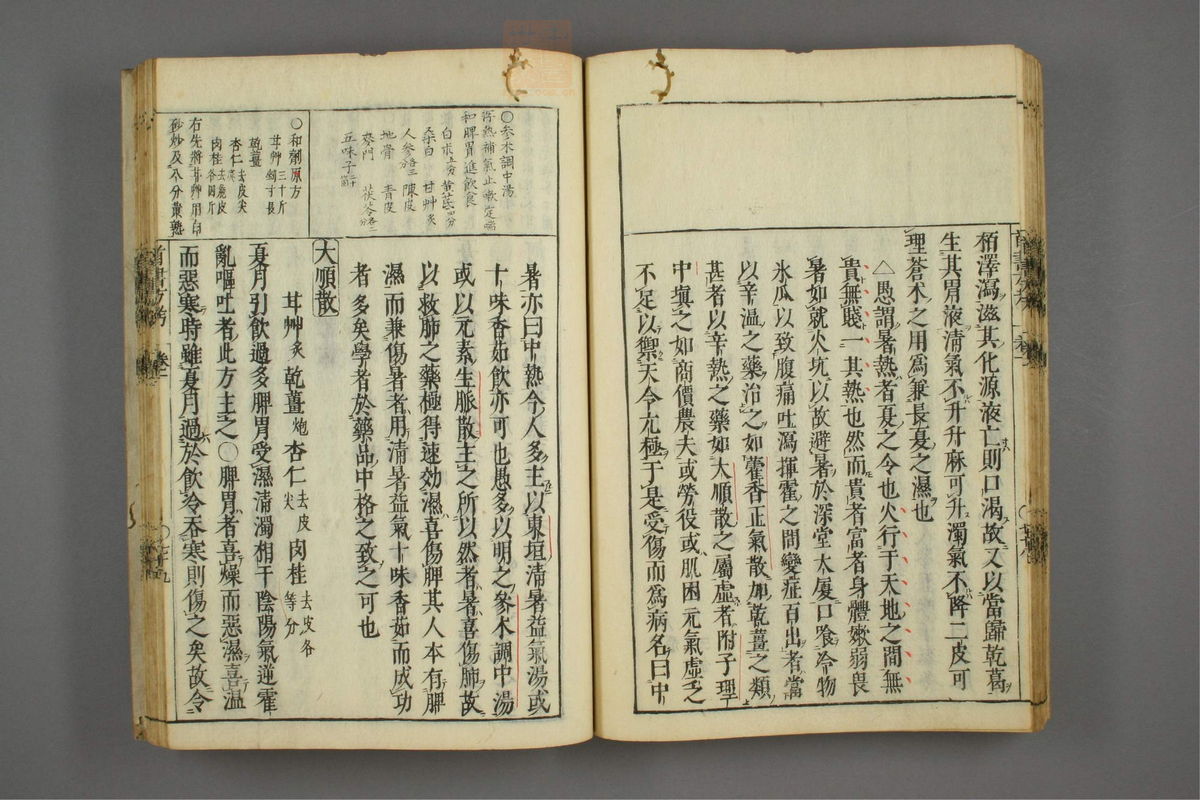 栢澤瀉滋其化源液亡則口渴故又以當歸乾葛
生其胃液清氣不升升麻可升濁氣不降二皮可
理蒼术之用爲兼長夏之濕也
△愚謂暑熱者夏之令也火行于天地之間無
貴無賤一其熱也然而貴者富者身體嫩弱畏
暑如就火坑以故避暑於深堂大厦口飡冷物
氷瓜以致腹痛吐瀉揮霍之間變症百出者當
以辛温之藥治之如藿香正氣散加乾薑之類
甚者以辛熱之藥如大順散之屬虚者附子理
中塡之如商價農夫或勞役或肌困元氣虚乏
不足以禦天令亢極于是受傷而爲病名曰中
○參术調中湯
瀉熱補氣止嗽定喘
和脾胃進飲食
白术五分 黄芪四分
桑白 甘艸炙
人參各三 陳皮
地骨 青皮
麥門 茯苓各二分
五味子二十箇
○和劑原方
甘艸三十斤 剉寸長
乾薑
杏仁去皮尖
肉桂去麁皮各四斤
右先將甘艸用白
砂炒及八分黄熟
暑亦曰中熱令人多主以東垣淸暑益氣湯或
十味香茹飲亦可也愚多以明之參术調中湯
或以元素生脈散主之所以然者暑喜傷肺故
以救肺之藥極得速効濕喜傷脾其人本有脾
濕而兼傷暑者用清暑益氣十味香茹而成功
者多矣學者於藥品中格之致之可也
大順散
甘艸炙 乾薑炮 杏仁去皮尖 肉桂去皮各等分
夏月引飲過多脾胃受濕清濁相干陰陽氣逆霍
亂嘔吐者此方主之○脾胃者喜燥而惡濕喜温
而惡寒時雖夏月過於飲冷吞寒則傷之矣故令